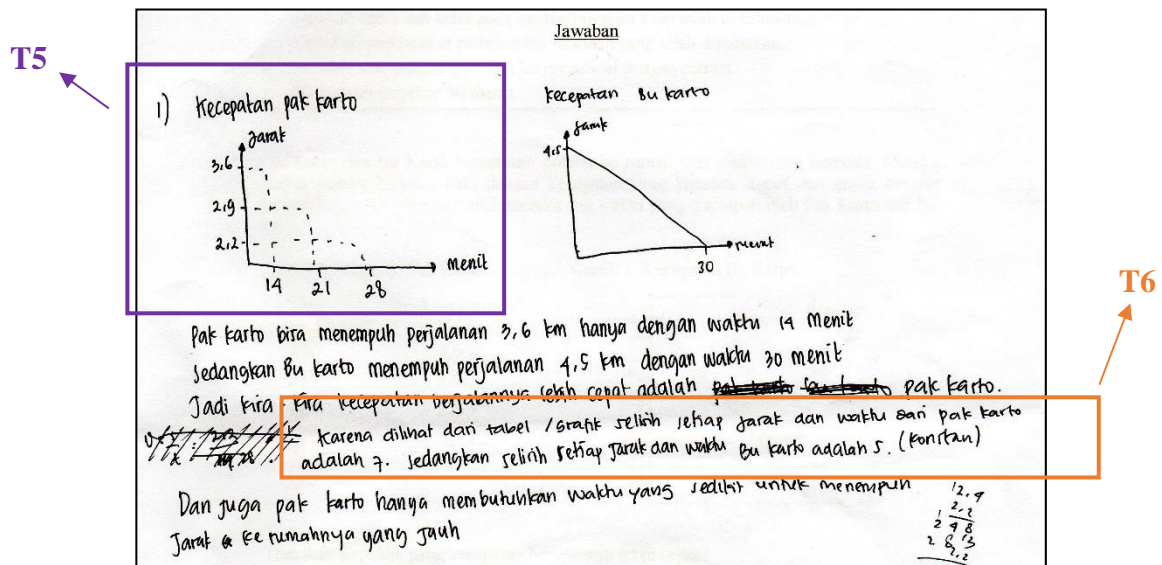 Jawaban
T5
1) Kecepatan pak karto
Jarak
3,6
2,9
2,2
14 21 28
menit
Kecepatan Bu karto
Jarak
4,5
30
menit
T6
Pak karto bisa menempuh perjalanan 3,6 km hanya dengan waktu 14 menit
sedangkan Bu karto menempuh perjalanan 4,5 km dengan waktu 30 menit
Jadi kira-kira kecepatan berjalannya lebih cepat adalah pak karto.
Karena dilihat dari tabel / Grafik selisih setiap jarak dan waktu dari pak karto
adalah 7. sedangkan selisih setiap jarak dan waktu Bu karto adalah 5. (konstan)
Dan juga pak karto hanya membutuhkan waktu yang sedikit untuk menempuh
Jarak ke rumahnya yang jauh
2,2